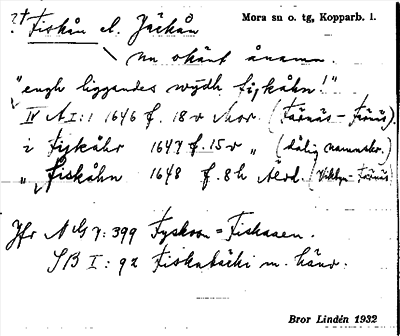 ?† Fiskån el. Jäckån
Mora sn o. tg, Kopparb. l.
nu okänt ånamn.
"engh liggandes wydh fiskåhn!"
IV A I:1 1646 f. 18 v Mor. (Färnäs - Finnäs).
i Fiskåhr 1647 f. 15 v " (dålig namnskr.)
" fiskåhn 1648 f. 8 h (Vikbyn - Färnäs
Jfr NG 7: 399 Fyskoon = Fiskaaen.
SB I: 92 Fiskabäcki m. händ.
Bror Lindén 1932